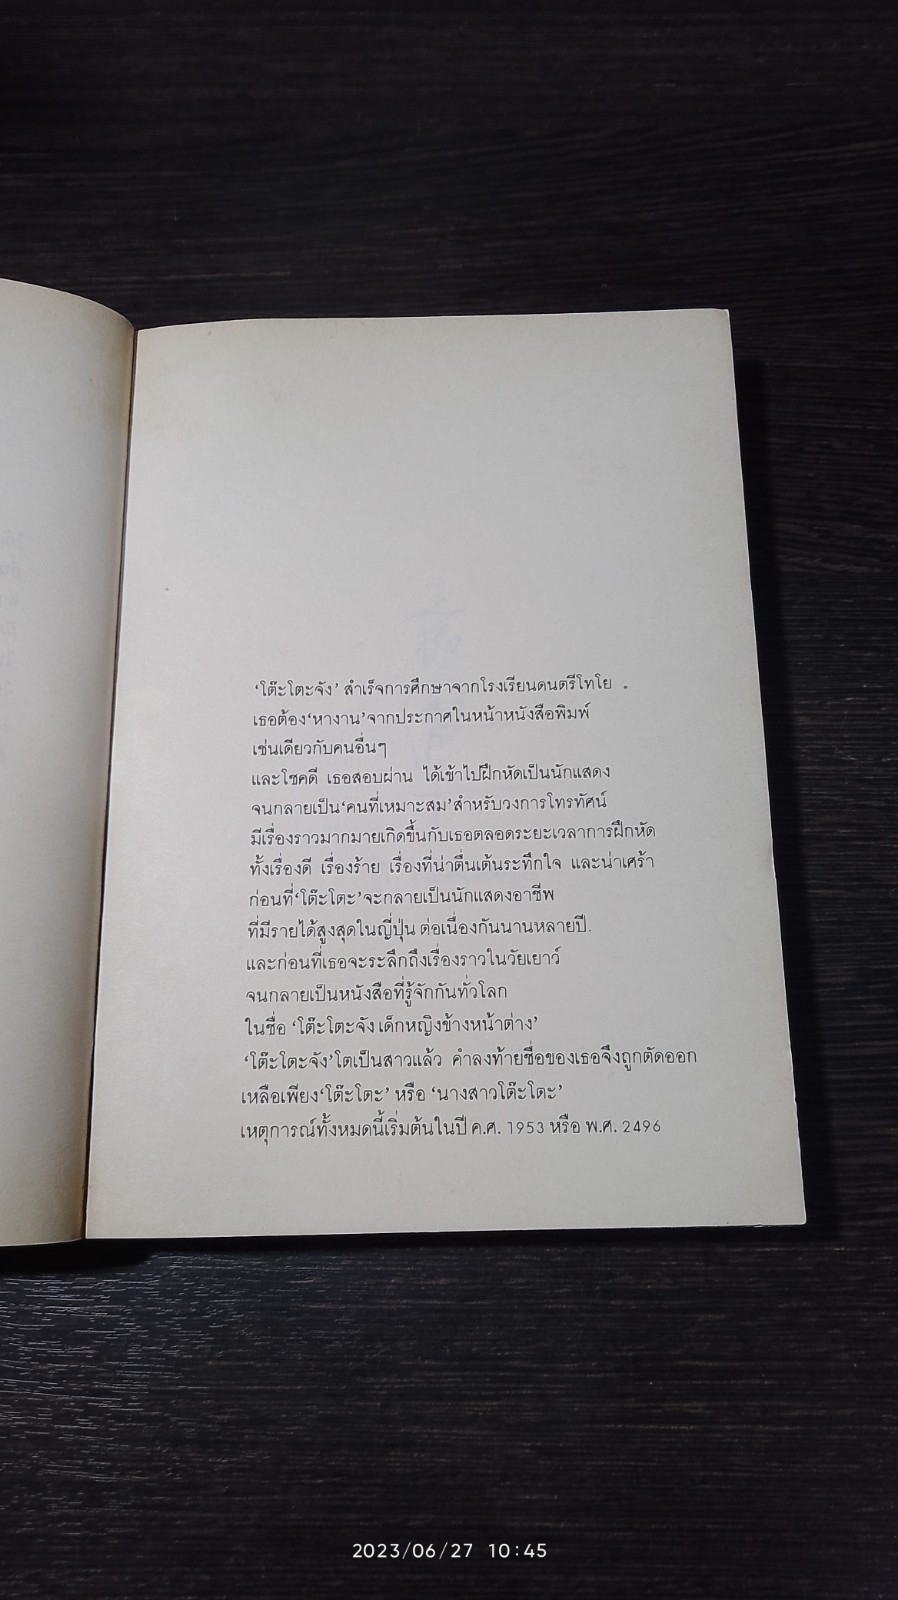 'โต๊ะโตะจัง' สำเร็จการศึกษาจากโรงเรียนดนตรีโทโย
เธอต้อง'หางาน'จากประกาศในหน้าหนังสือพิมพ์
เช่นเดียวกับคนอื่นๆ
และโชคดี เธอสอบผ่าน ได้เข้าไปฝึกหัดเป็นนักแสดง
จนกลายเป็น'คนที่เหมาะสม'สำหรับวงการโทรทัศน์
มีเรื่องราวมากมายเกิดขึ้นกับเธอตลอดระยะเวลาการฝึกหัด
ทั้งเรื่องดี เรื่องร้าย เรื่องที่น่าตื่นเต้นระทึกใจ และน่าเศร้า
ก่อนที่'โต๊ะโตะ'จะกลายเป็นนักแสดงอาชีพ
ที่มีรายได้สูงสุดในญี่ปุ่น ต่อเนื่องกันนานหลายปี.
และก่อนที่เธอจะระลึกถึงเรื่องราวในวัยเยาว์
จนกลายเป็นหนังสือที่รู้จักกันทั่วโลก
ในชื่อ 'โต๊ะโตะจัง เด็กหญิงข้างหน้าต่าง'
'โต๊ะโตะจัง'โตเป็นสาวแล้ว คำลงท้ายชื่อของเธอจึงถูกตัดออก
เหลือเพียง'โต๊ะโตะ' หรือ 'นางสาวโต๊ะโตะ'
เหตุการณ์ทั้งหมดนี้เริ่มต้นในปี ค.ศ. 1953 หรือ พ.ศ. 2496
2023/06/27 10:45